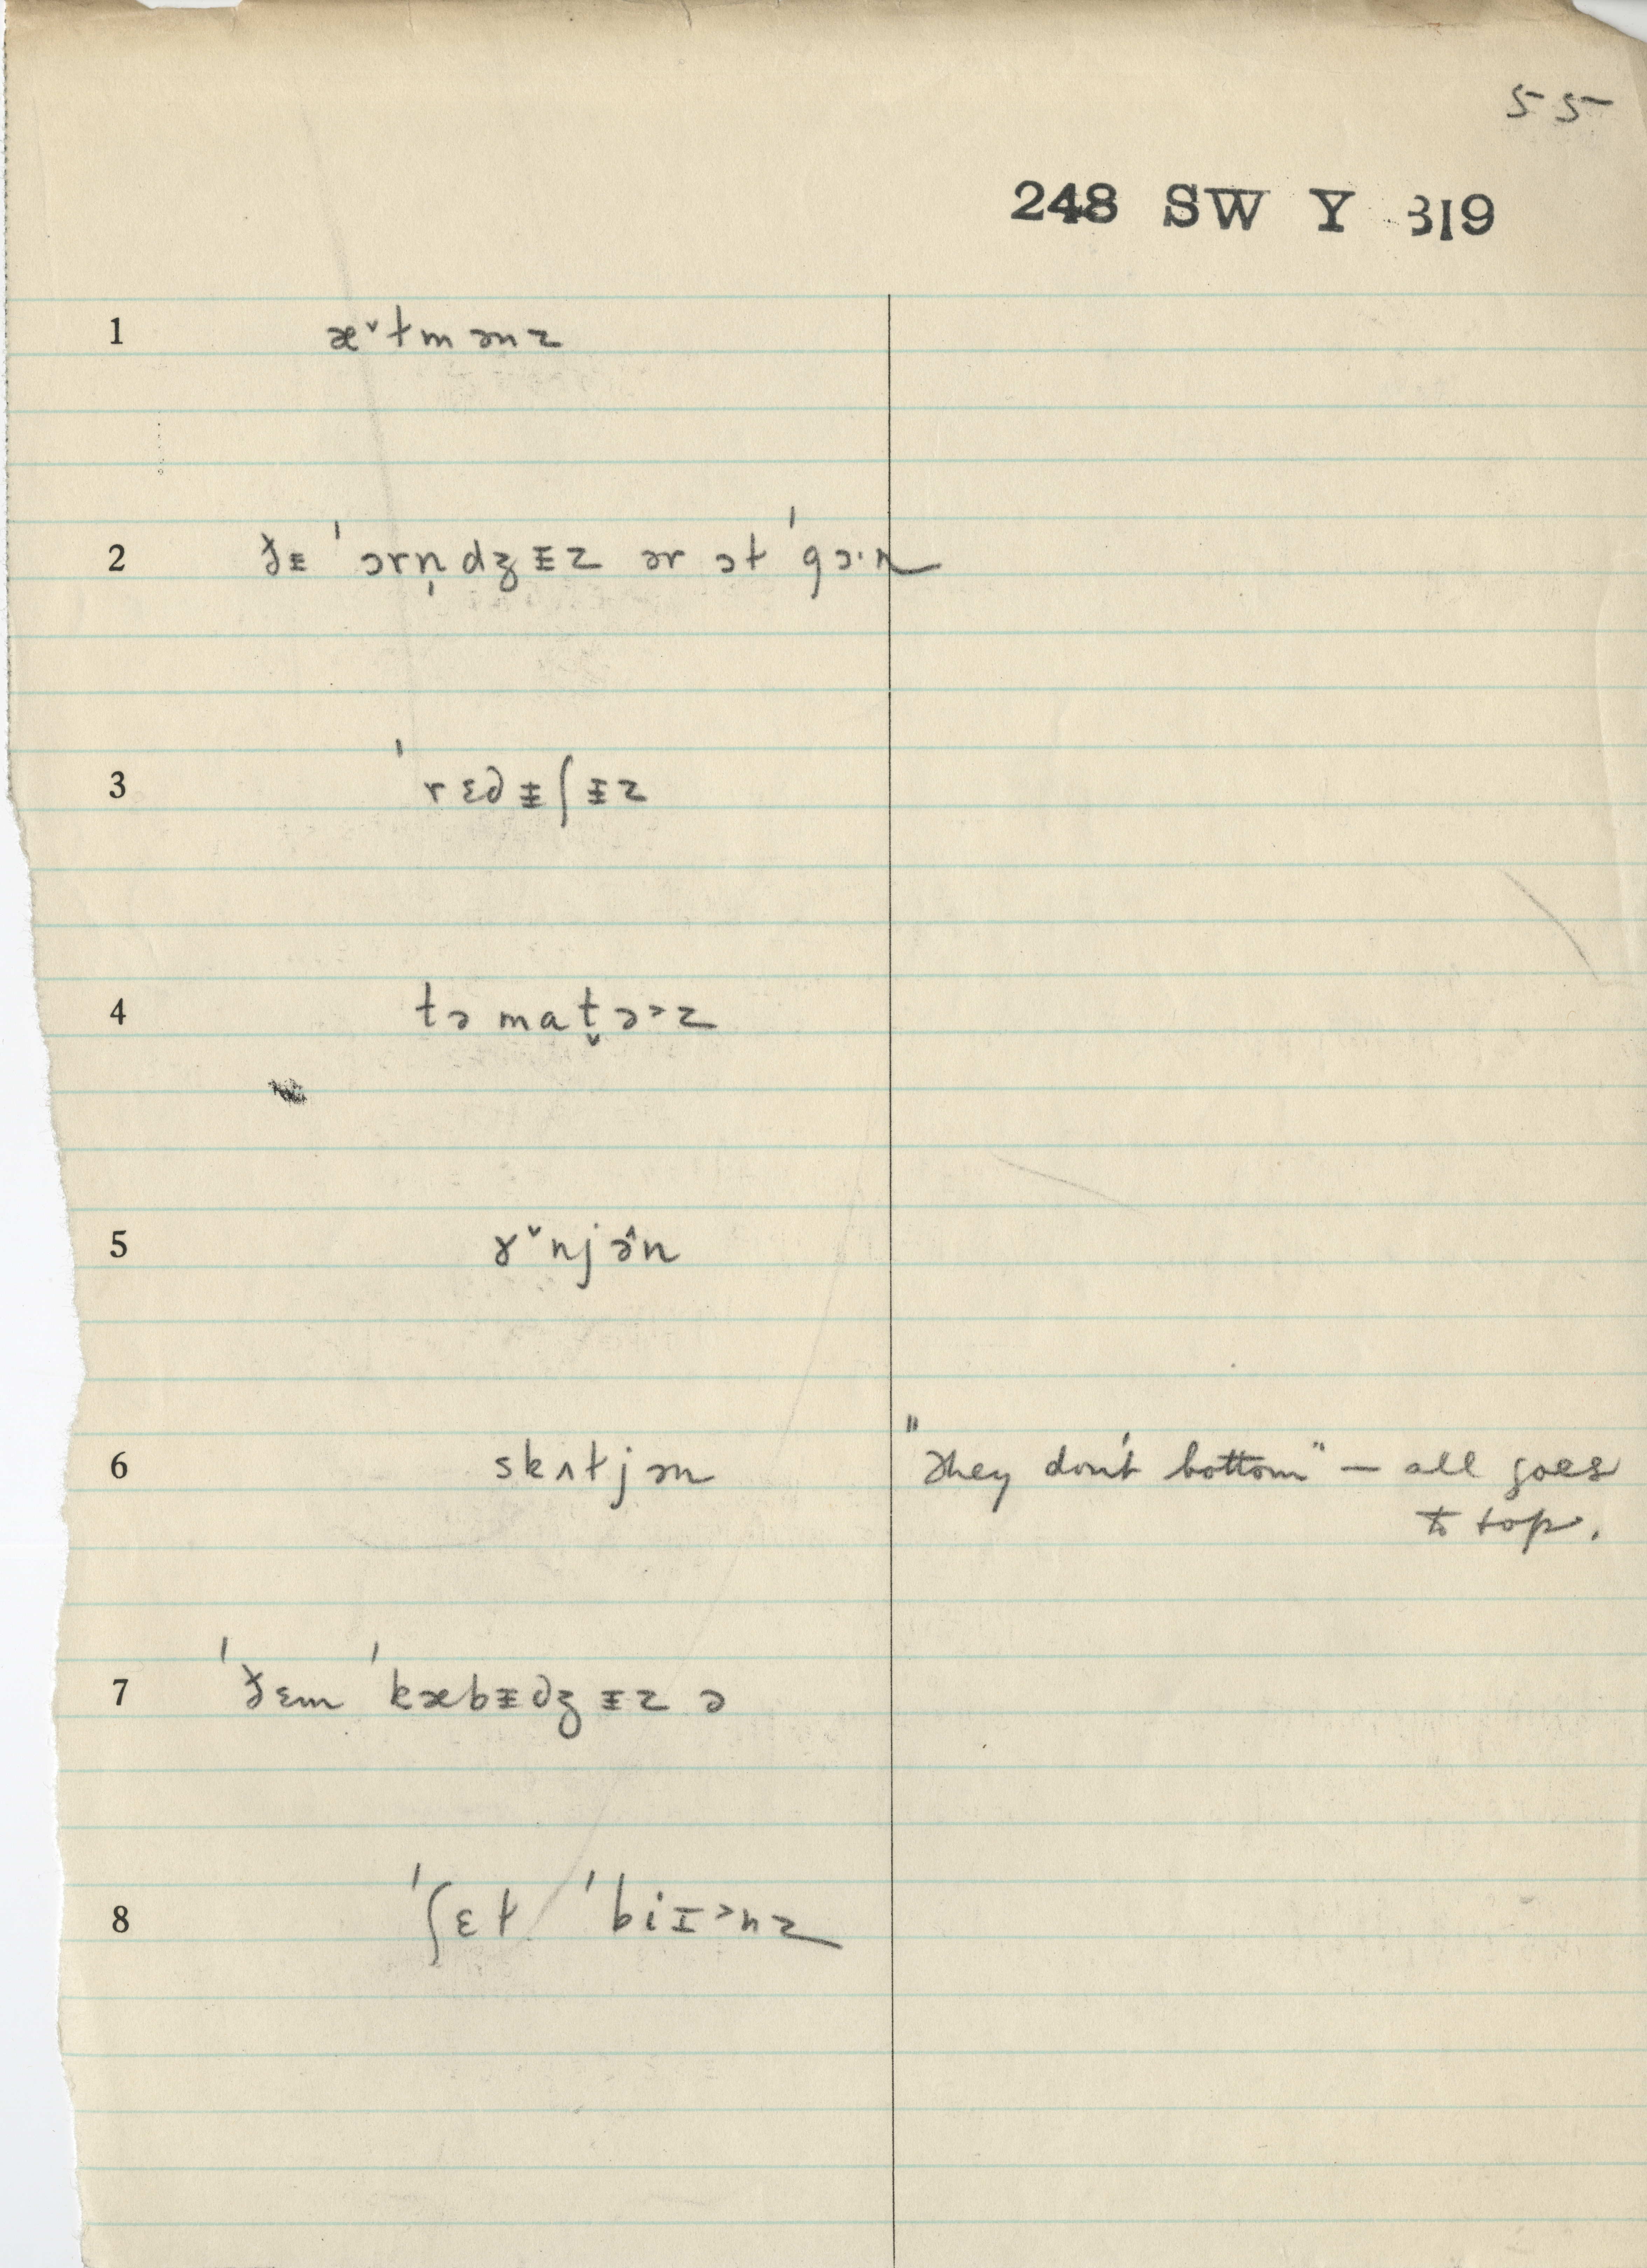 55
248 SW Y 319
1 æ˅tmənz
2 ðᵻ ˈɔrn̩dʒᵻz ər ɔt ˈgɔ·n
3 ˈrɛdᵻʃᵻz
4 təmat̬ə˃z
5 ɤ˅njə̂n
6 skʌtjən "They don't bottom" — all goes
to top.
7 ˈðɛm ˈkæbᵻdʒᵻz ə
8 ˈʃɛt ˈbiɪ˃nz